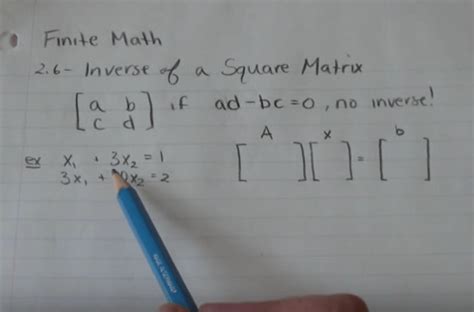 Finite Math
2.6- Inverse of a Square Matrix
[a b
c d] if ad-bc=0, no inverse!
A x b
[ ][ ]=[ ]
ex x₁ + 3x₂ = 1
3x₁ + 0x₂ = 2